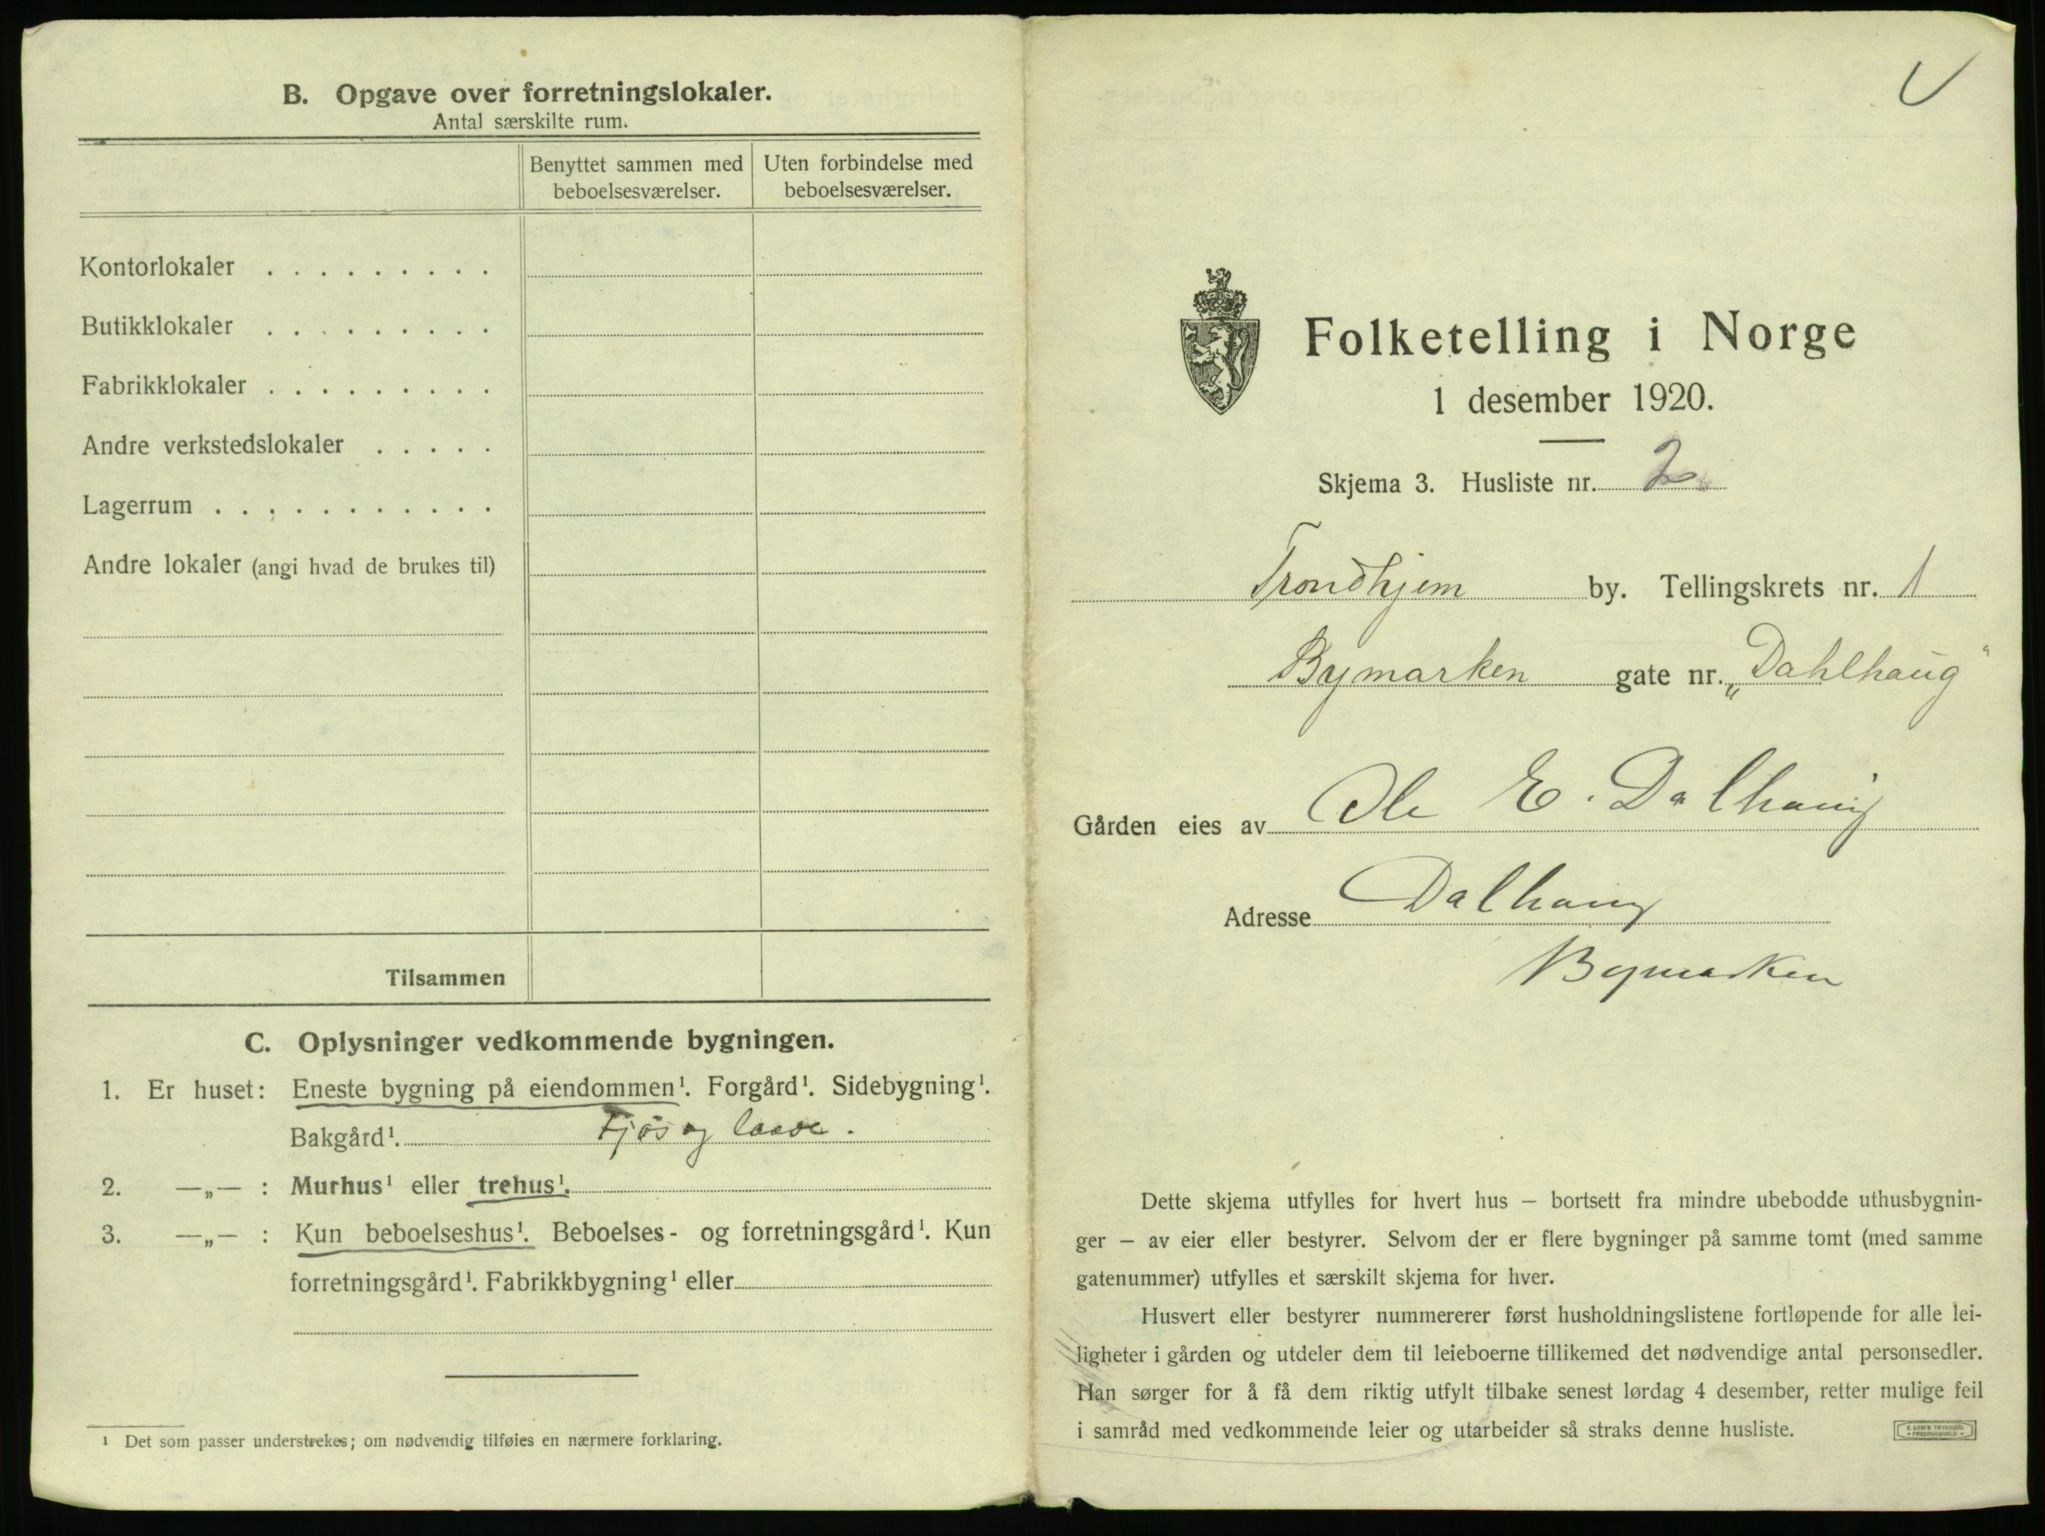 B. Opgave over forretningslokaler.
Antal særskilte rum.
Benyttet sammen med
beboelsesværelser.
Uten forbindelse med
beboelsesværelser.
Kontorlokaler . . . . . . . . .
Butikklokaler . . . . . . . . .
Fabrikklokaler . . . . . . . . .
Andre verkstedslokaler . . . . .
Lagerrum . . . . . . . . . . .
Andre lokaler (angi hvad de brukes til)
Tilsammen
C. Oplysninger vedkommende bygningen.
1. Er huset: Eneste bygning på eiendommen¹. Forgård¹. Sidebygning¹.
Bakgård¹. Fjøs og laave.
2. —„— : Murhus¹ eller trehus¹.
3. —„— : Kun beboelseshus¹. Beboelses- og forretningsgård¹. Kun
forretningsgård¹. Fabrikkbygning¹ eller
¹ Det som passer understrekes; om nødvendig tilføies en nærmere forklaring.
Folketelling i Norge
1 desember 1920.
Skjema 3. Husliste nr. 2
Trondhjem by. Tellingskrets nr. 1
Bymarken gate nr. „Dahlhaug"
Gården eies av Ole E. Dalhaug
Adresse Dalhaug
Bymarken
Dette skjema utfylles for hvert hus – bortsett fra mindre ubebodde uthusbygnin-
ger – av eier eller bestyrer. Selvom der er flere bygninger på samme tomt (med samme
gatenummer) utfylles et særskilt skjema for hver.
Husvert eller bestyrer nummererer først husholdningslistene fortløpende for alle lei-
ligheter i gården og utdeler dem til leieboerne tillikemed det nødvendige antal personsedler.
Han sørger for å få dem riktig utfylt tilbake senest lørdag 4 desember, retter mulige feil
i samråd med vedkommende leier og utarbeider så straks denne husliste.